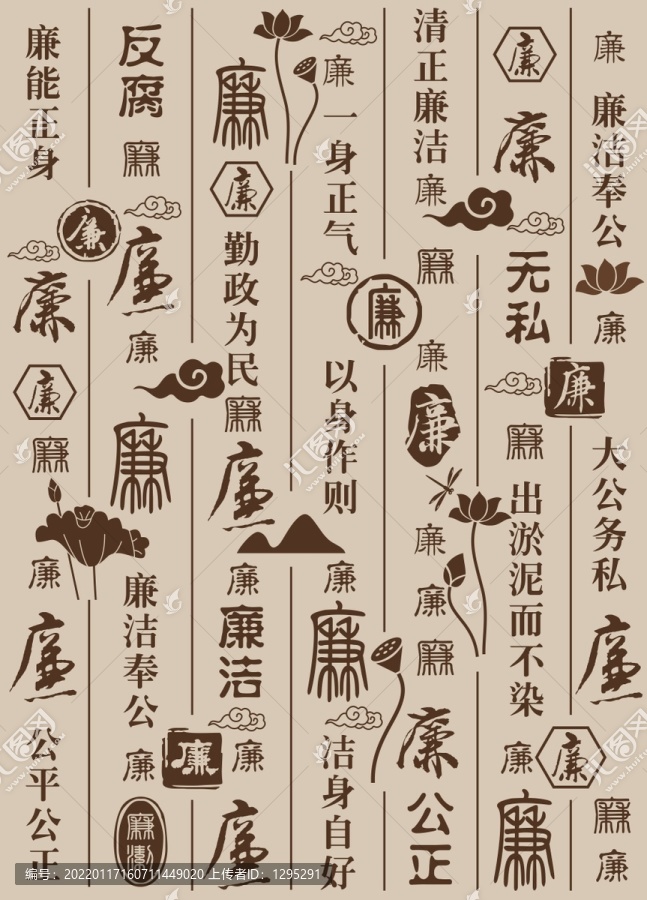 廉
廉洁奉公
廉
大公务私
廉
廉
廉
廉
廉
无私
廉
廉
出淤泥而不染
廉
廉
廉
清正廉洁
廉
廉
廉
廉
廉
廉
廉
廉
公正
廉
一身正气
廉
以身作则
廉
廉
洁身自好
廉
廉
勤政为民
廉
廉
廉
廉洁
廉
廉
反腐
廉
廉
廉
廉
廉洁奉公
廉
廉
廉洁
廉能正身
廉
廉
廉
廉
廉
廉
公平公正
编号：20220117160711449020 上传者ID：1295291